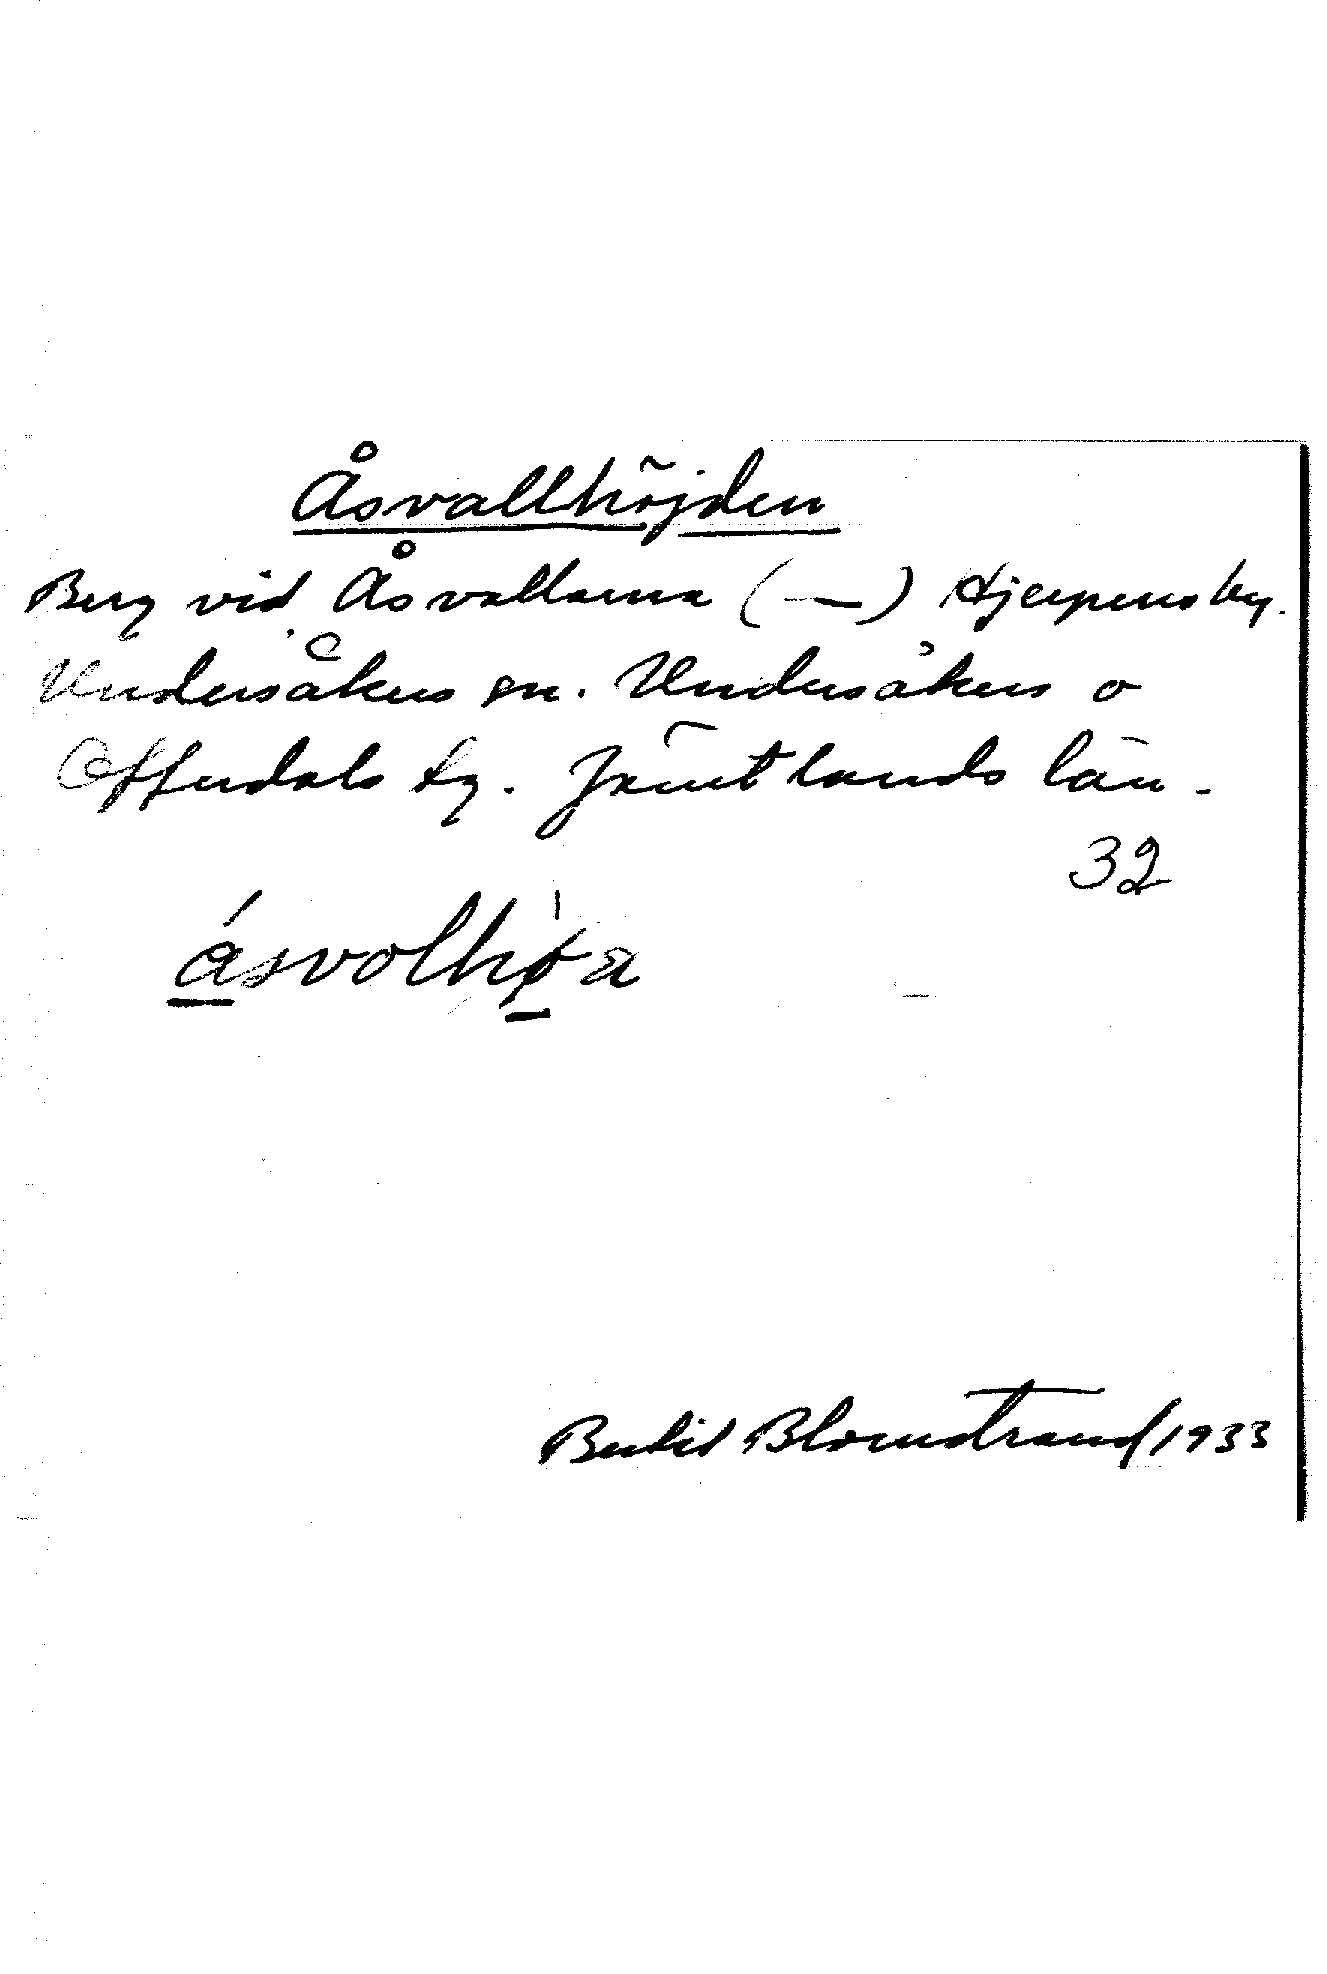 Åsvallhöjden
Berg vid Åsvallarna (—) Hjerpens by.
Undersåkers sn. Undersåkers o
Offerdals tg. Jämtlands län.
32
ásvollhø̀a
Blomstrand 1933